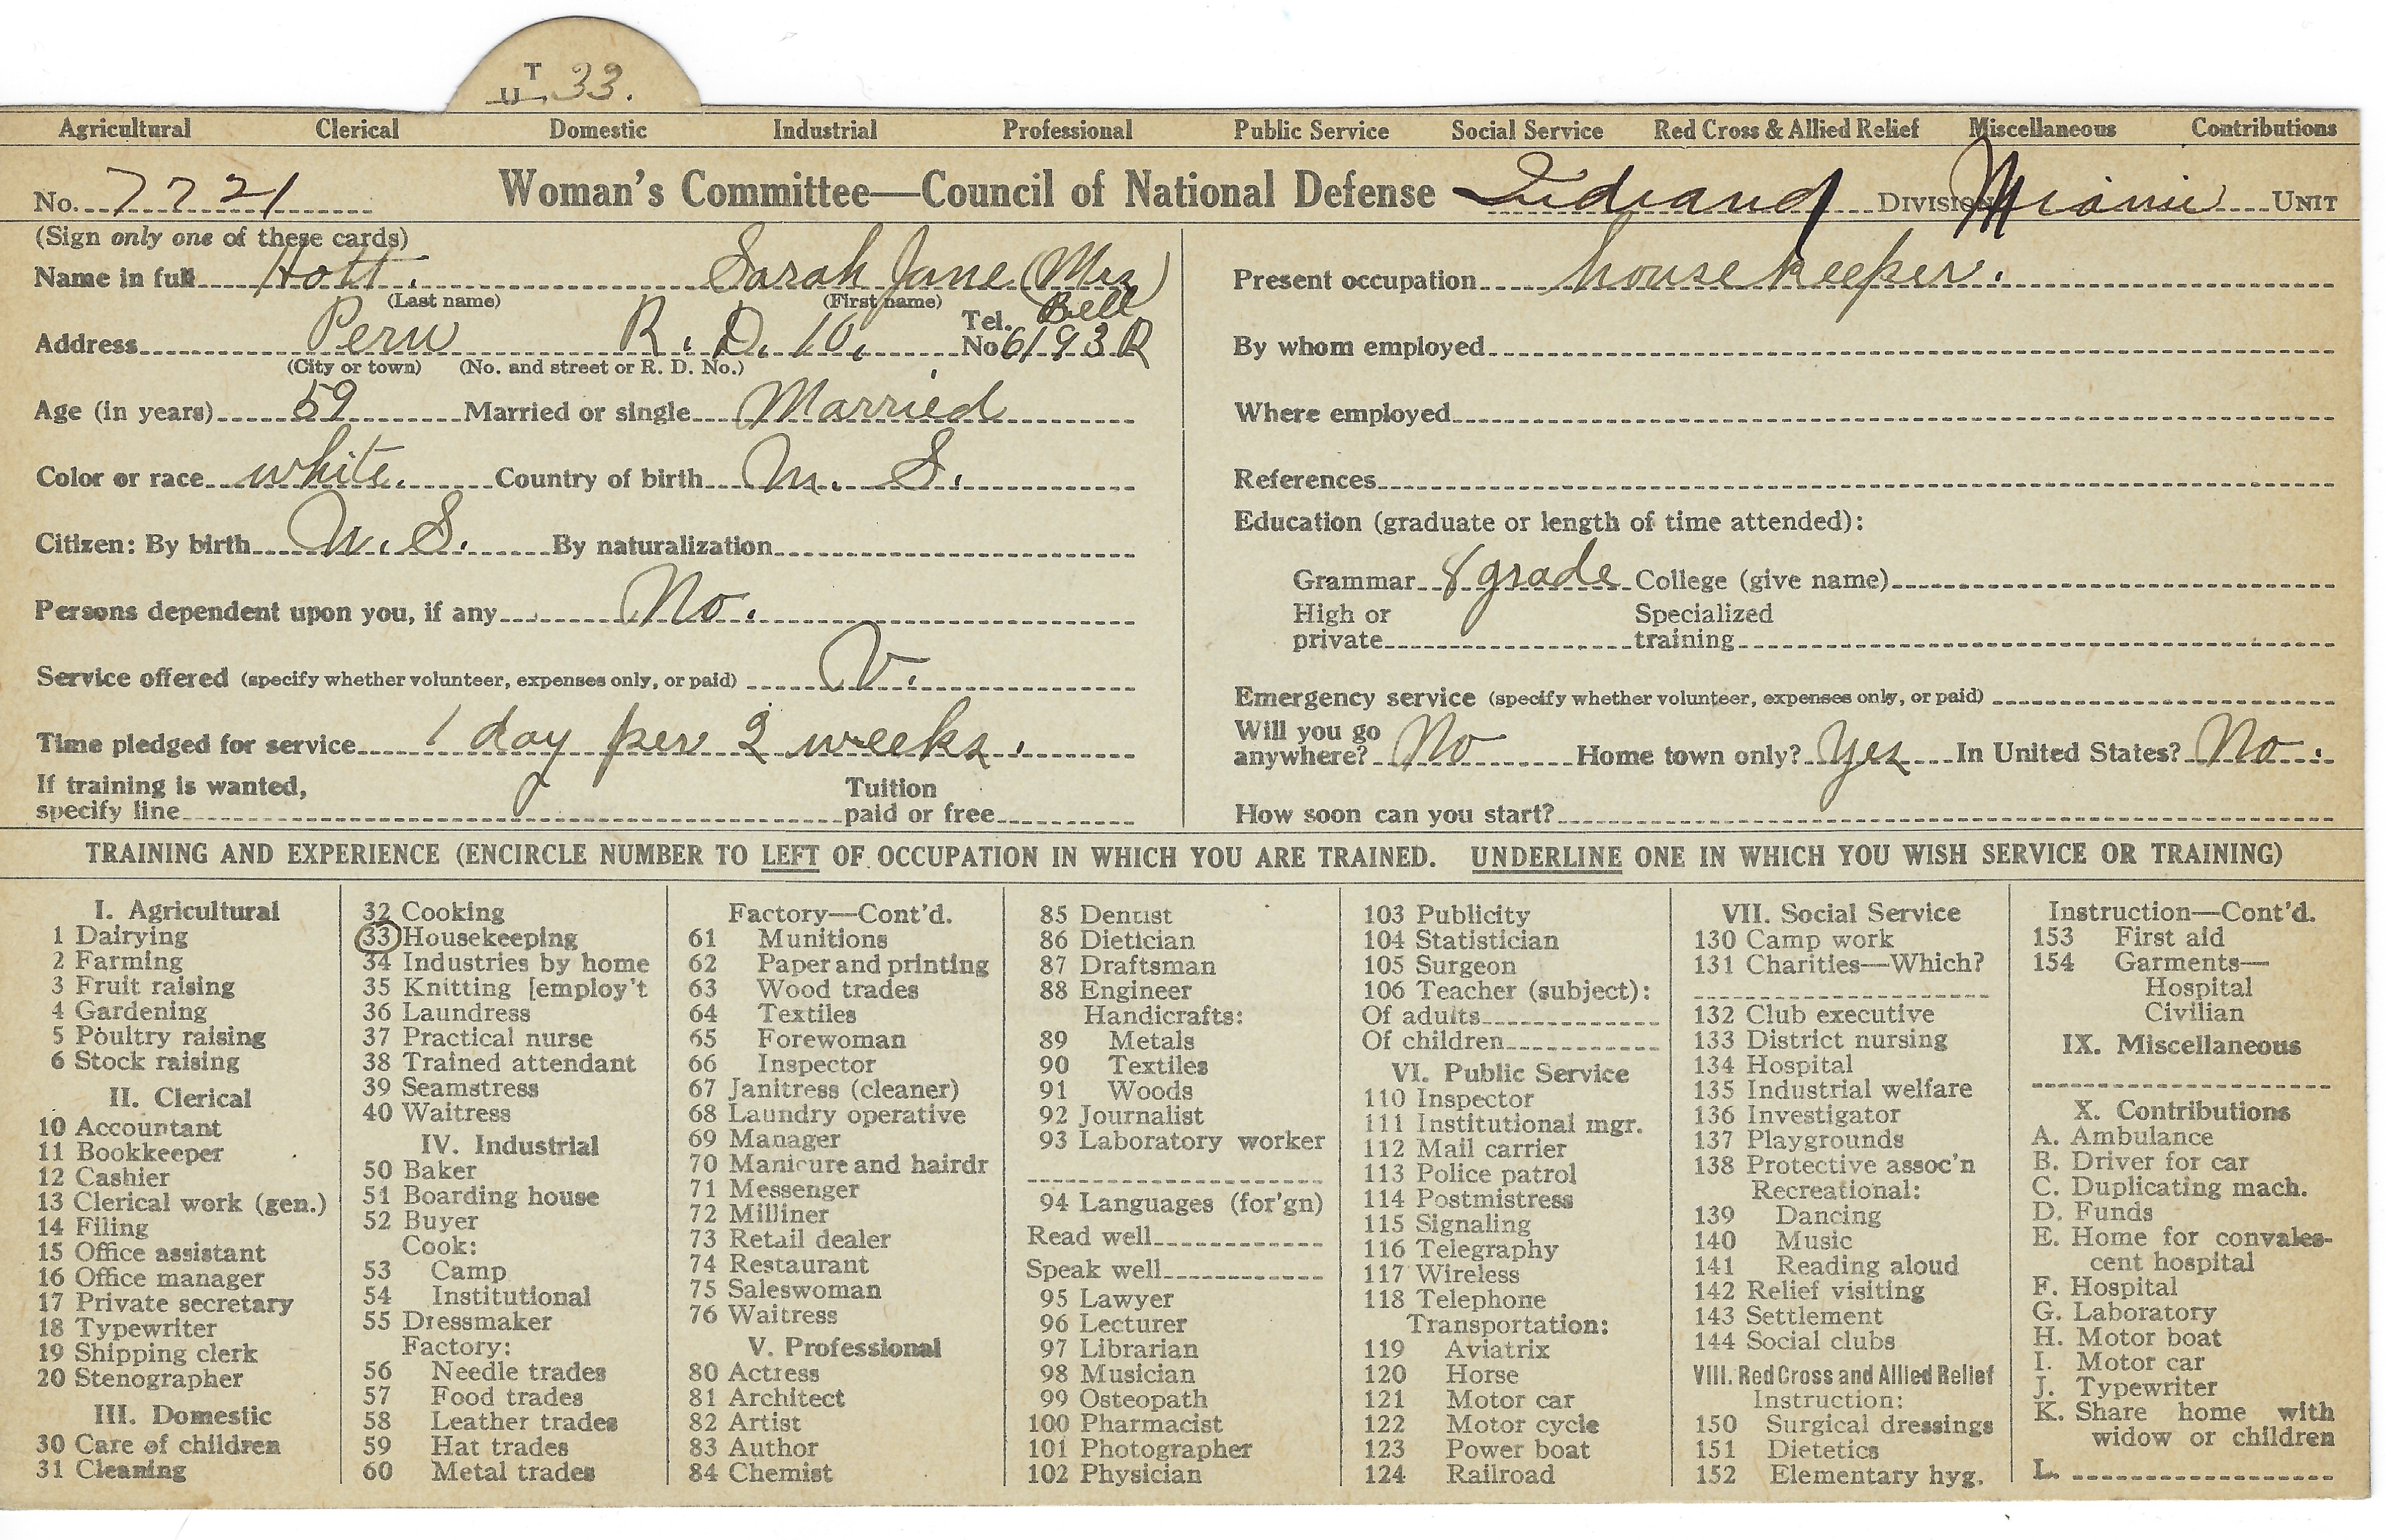 T
U 33.
Agricultural Clerical Domestic Industrial Professional Public Service Social Service Red Cross & Allied Relief Miscellaneous Contributions
No. 7721 Woman's Committee—Council of National Defense Indiana Division Miami Unit
(Sign only one of these cards)
Name in full Hott. Sarah Jane (Mrs)
(Last name) (First name)
Address Peru R. D. 10. Tel. No. Bell 6193 R
(City or town) (No. and street or R. D. No.)
Age (in years) 59 Married or single Married
Color or race white. Country of birth U. S.
Citizen: By birth U. S. By naturalization
Persons dependent upon you, if any No.
Service offered (specify whether volunteer, expenses only, or paid) V.
Time pledged for service 1 day per 2 weeks.
If training is wanted, specify line Tuition paid or free
Present occupation housekeeper.
By whom employed
Where employed
References
Education (graduate or length of time attended):
Grammar 8 grade College (give name)
High or private Specialized training
Emergency service (specify whether volunteer, expenses only, or paid)
Will you go anywhere? No Home town only? Yes In United States? No.
How soon can you start?
TRAINING AND EXPERIENCE (ENCIRCLE NUMBER TO LEFT OF OCCUPATION IN WHICH YOU ARE TRAINED. UNDERLINE ONE IN WHICH YOU WISH SERVICE OR TRAINING)
I. Agricultural
1 Dairying
2 Farming
3 Fruit raising
4 Gardening
5 Poultry raising
6 Stock raising
II. Clerical
10 Accountant
11 Bookkeeper
12 Cashier
13 Clerical work (gen.)
14 Filing
15 Office assistant
16 Office manager
17 Private secretary
18 Typewriter
19 Shipping clerk
20 Stenographer
III. Domestic
30 Care of children
31 Cleaning
32 Cooking
33 Housekeeping
34 Industries by home
35 Knitting [employ't
36 Laundress
37 Practical nurse
38 Trained attendant
39 Seamstress
40 Waitress
IV. Industrial
50 Baker
51 Boarding house
52 Buyer
Cook:
53 Camp
54 Institutional
55 Dressmaker
Factory:
56 Needle trades
57 Food trades
58 Leather trades
59 Hat trades
60 Metal trades
Factory—Cont'd.
61 Munitions
62 Paper and printing
63 Wood trades
64 Textiles
65 Forewoman
66 Inspector
67 Janitress (cleaner)
68 Laundry operative
69 Manager
70 Manicure and hairdr
71 Messenger
72 Milliner
73 Retail dealer
74 Restaurant
75 Saleswoman
76 Waitress
V. Professional
80 Actress
81 Architect
82 Artist
83 Author
84 Chemist
85 Dentist
86 Dietician
87 Draftsman
88 Engineer
Handicrafts:
89 Metals
90 Textiles
91 Woods
92 Journalist
93 Laboratory worker
94 Languages (for'gn)
Read well
Speak well
95 Lawyer
96 Lecturer
97 Librarian
98 Musician
99 Osteopath
100 Pharmacist
101 Photographer
102 Physician
103 Publicity
104 Statistician
105 Surgeon
106 Teacher (subject):
Of adults
Of children
VI. Public Service
110 Inspector
111 Institutional mgr.
112 Mail carrier
113 Police patrol
114 Postmistress
115 Signaling
116 Telegraphy
117 Wireless
118 Telephone
Transportation:
119 Aviatrix
120 Horse
121 Motor car
122 Motor cycle
123 Power boat
124 Railroad
VII. Social Service
130 Camp work
131 Charities—Which?
132 Club executive
133 District nursing
134 Hospital
135 Industrial welfare
136 Investigator
137 Playgrounds
138 Protective assoc'n
Recreational:
139 Dancing
140 Music
141 Reading aloud
142 Relief visiting
143 Settlement
144 Social clubs
VIII. Red Cross and Allied Relief
Instruction:
150 Surgical dressings
151 Dietetics
152 Elementary hyg.
Instruction—Cont'd.
153 First aid
154 Garments—
Hospital
Civilian
IX. Miscellaneous
X. Contributions
A. Ambulance
B. Driver for car
C. Duplicating mach.
D. Funds
E. Home for convales-
cent hospital
F. Hospital
G. Laboratory
H. Motor boat
I. Motor car
J. Typewriter
K. Share home with
widow or children
L.